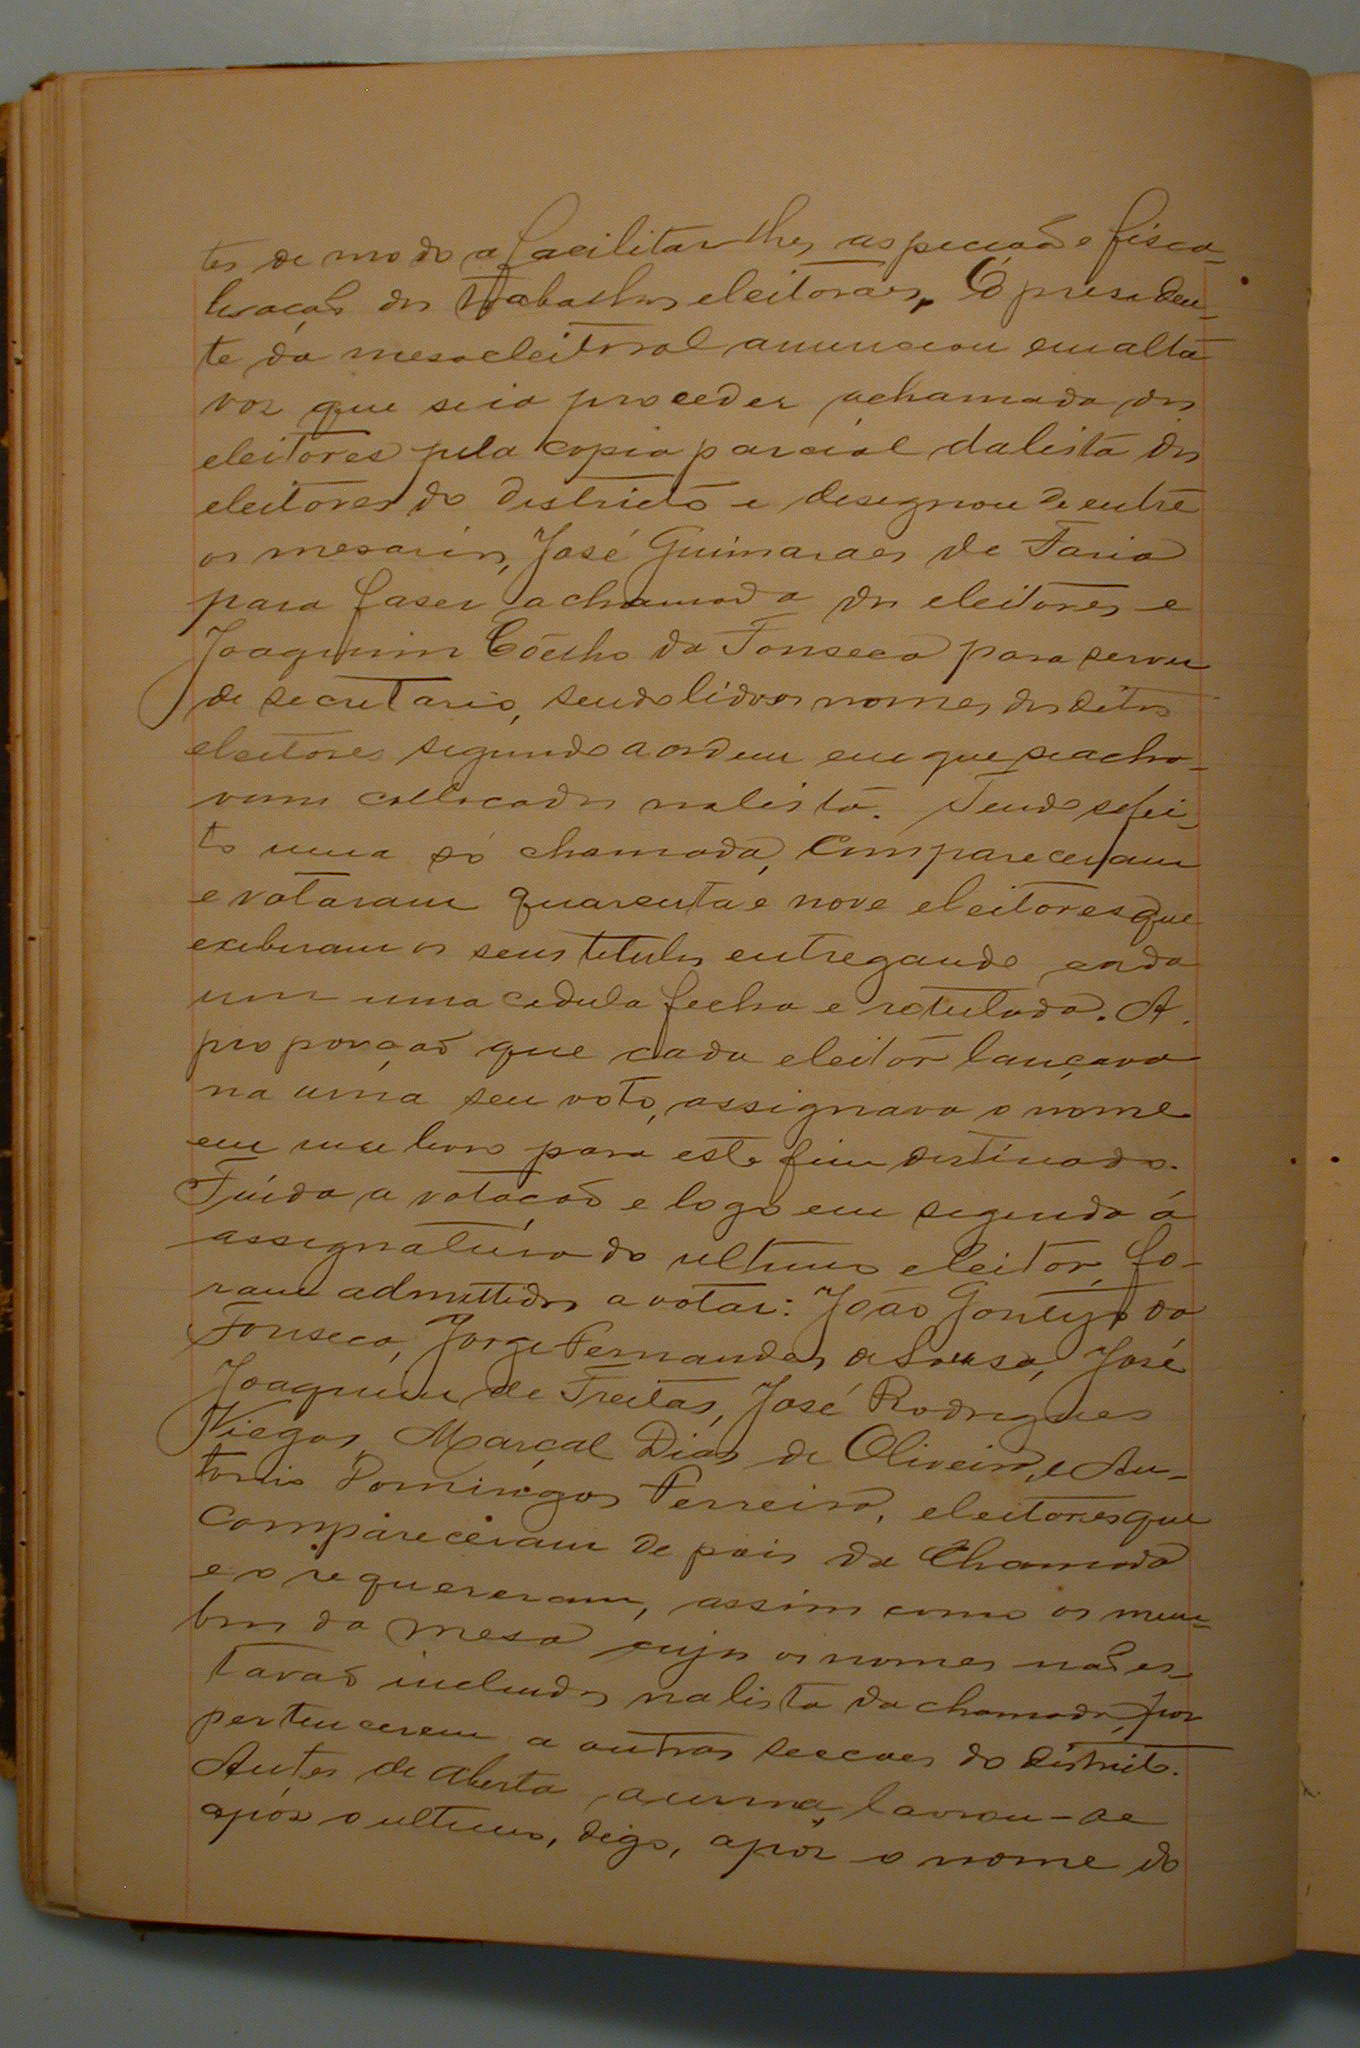 tes de modo a facilitar lhes as peccaõ e fisca-
lisaçaõ dos trabalhos eleitoraes. O presiden-
te da mesa eleitoral annunciou em alta
voz que se ia proceder a chamada dos
eleitores pela copia parcial da lista dos
eleitores do districto e designou de entre
os mesarios, José Guimaraes de Faria
para faser a chamada dos eleitores e
Joaquim Coêlho da Fonseca para servir
de secretario, sendo lidos os nomes dos ditos
eleitores segundo a ordem em que se acha-
vam collocados na lista. Tendo se fei-
to uma só chamada, compareceram
e votaram quarenta e nove eleitores que
exibiram os seus titulos entregando cada
um uma cedula fecha e rotulada. A
proporçaõ que cada eleitor lançava
na urna seu voto, assignava o nome
em um livro para este fim destinado.
Finda a votaçaõ e logo em seguida á
assignatura do ultimo eleitor, fo-
ram admittidos a votar: João Gontijo da
Fonseca, Jorge Fernandes de Sousa, José
Joaquim de Freitas, José Rodrigues
Viegas, Marçal Dias de Oliveira, e An-
tonio Domingos Ferreira, eleitores que
compareceram de pois da chamada
e o requereram, assim como os mem-
bros da mesa cujos os nomes naõ es-
tavaõ incluidos na lista da chamada, por
pertencerem a outras seccoes do districto.
Antes de aberta a urna, lavrou-se
após o ultimo, digo, após o nome do